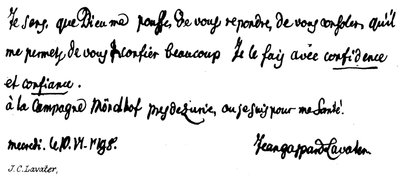 Je sens, que Dieu me pousse de vous repondre, de vous consoler, qu'il
me permet, de vous confier beaucoup Je le fais avec confidence
et confiance.
à la Campagne Mörelhof pres de Zuric, ou je suis pour ma Santé.
mecredi. le 10. VI.
Jean gaspard Lavater
J. C. Lavater,